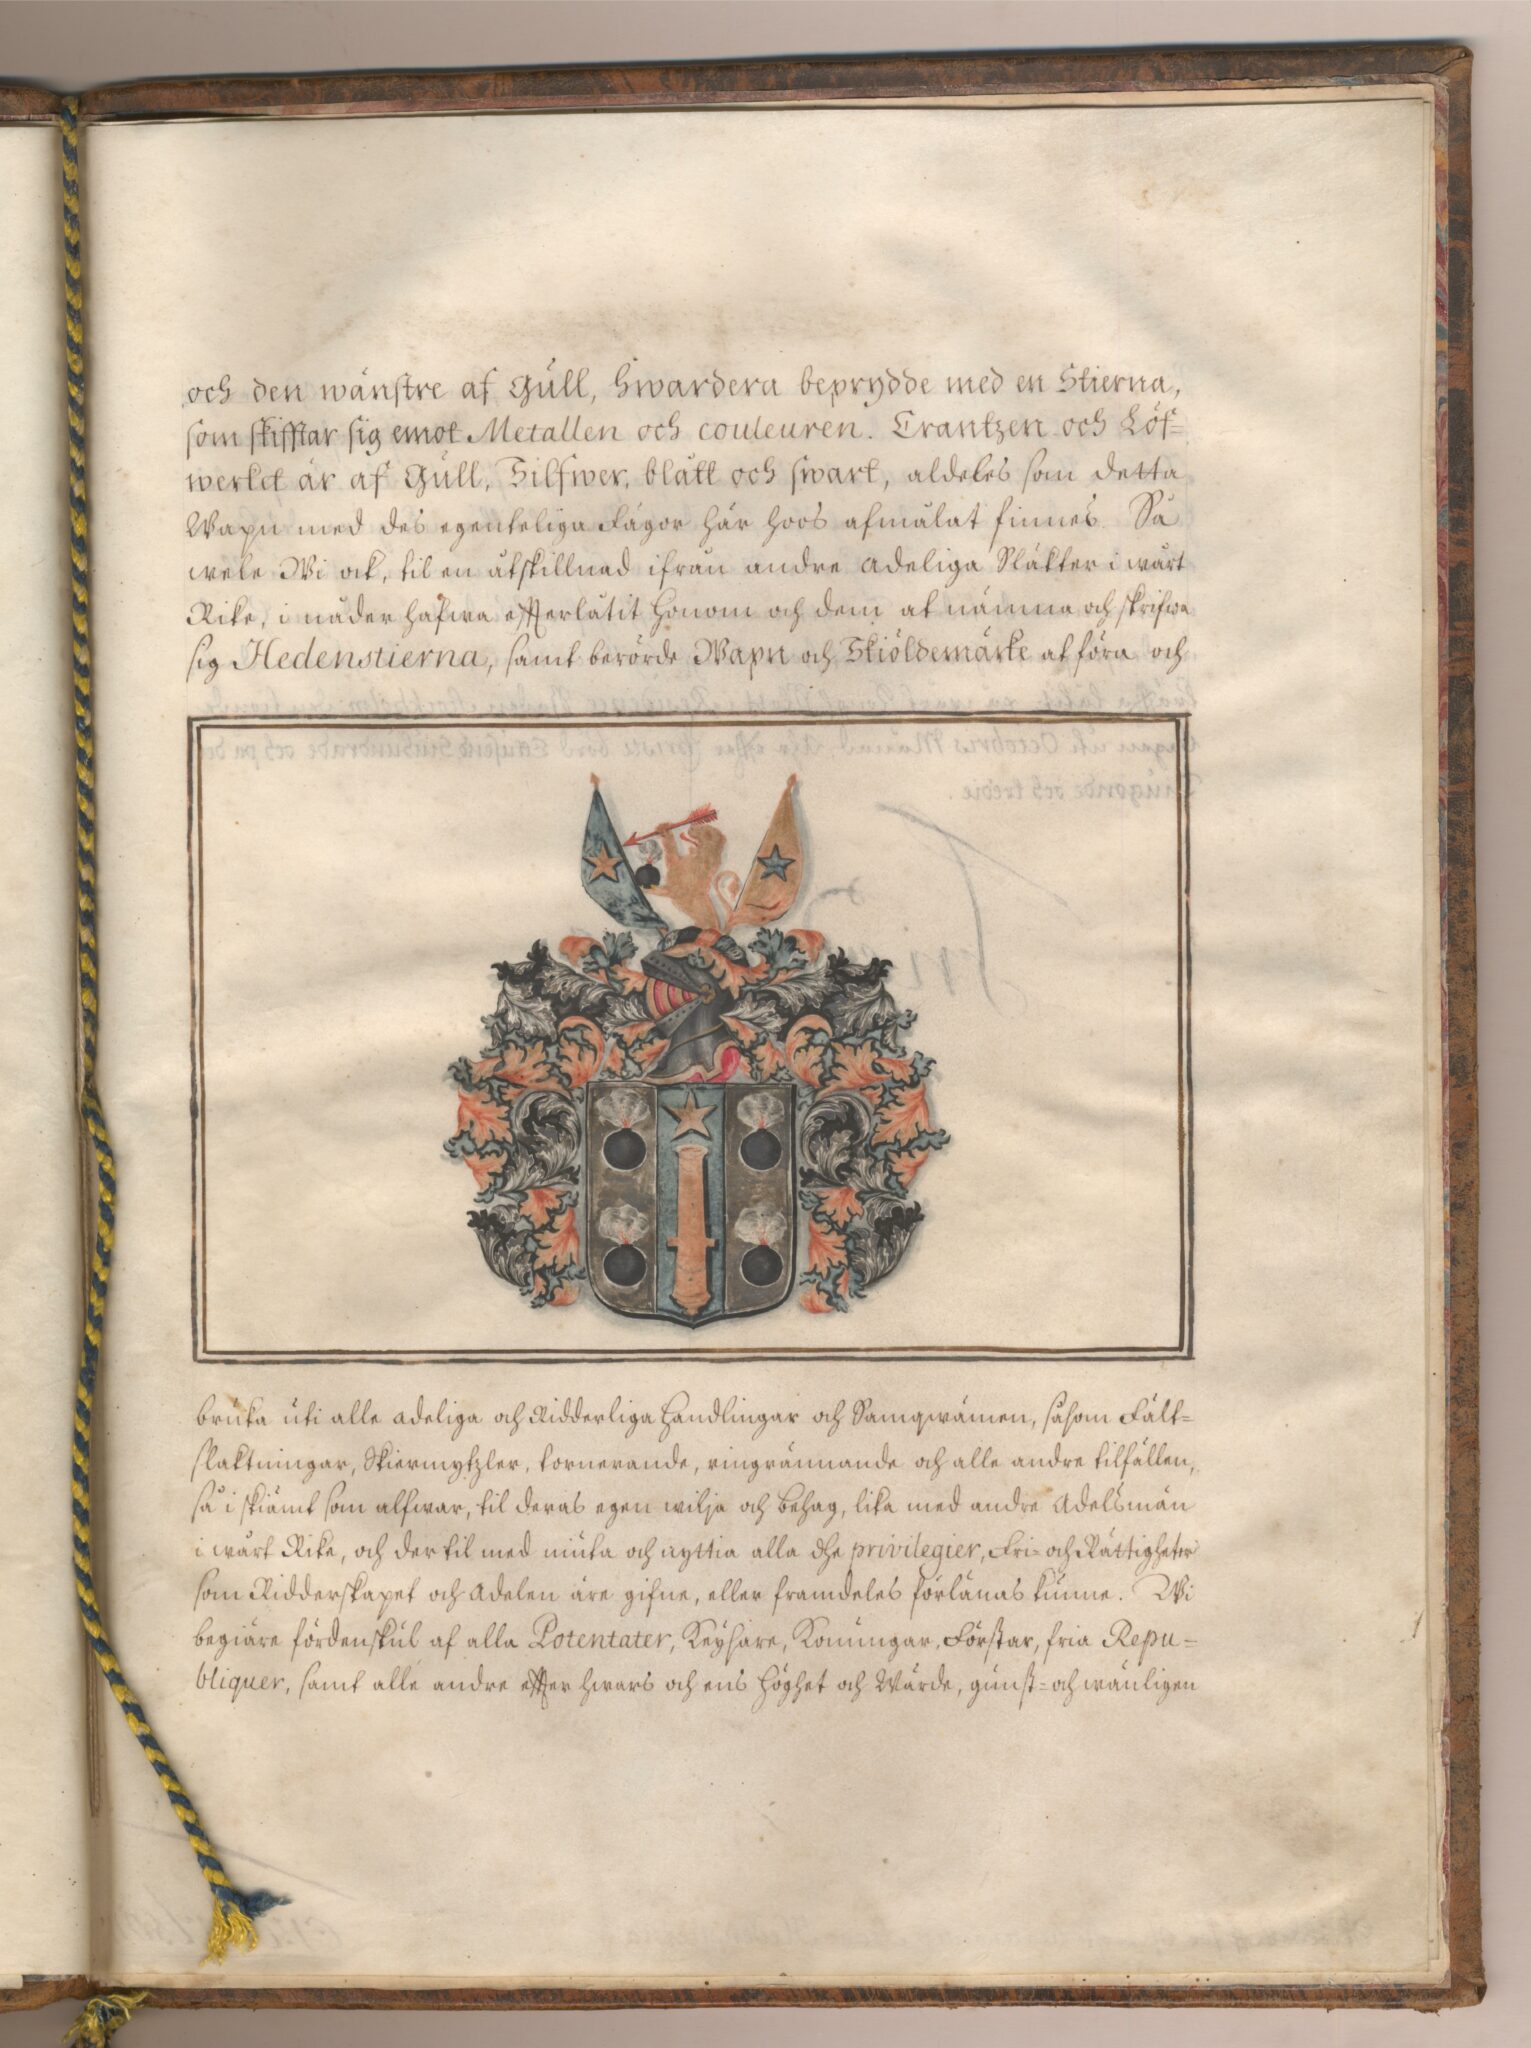 och den wänstre af Gull, hwardera beprydde med en Stierna,
som skifftar sig emot Metallen och couleuren. Crantzen och Löf-
werket är af Gull, Silfwer, blått och swart, aldeles som detta
Wapn med des egenteliga Fägor här hoos afmålat finnes. Så
wele Wi ock, til en åtskillnad ifrån andre Adeliga Släkter i wårt
Rike, i nåder hafwa effterlåtit honom och dem at nämna och skrifwa
sig Hedenstierna, samt berörde Wapn och Skiöldemärke at föra och
bruka uti alle adeliga och Ridderliga Handlingar och Samqwämen, såsom Fält-
slaktningar, Skiermytzler, tornerande, ringrännande och alle andre tilfällen,
så i skiämt som alfwar, til deras egen wilja och behag, lika med andre Adelsmän
i wårt Rike, och der til med niuta och nyttia alla dhe privilegier, Fri- och Rättigheter
som Ridderskapet och Adelen äre gifne, eller framdeles förlänas kunne. Wi
begiäre fördenskul af alla Potentater, Keysare, Konungar, Förstar, fria Repu-
bliquer, samt alle andre effter hwars och ens höghet och Wärde, gunst- och wänligen